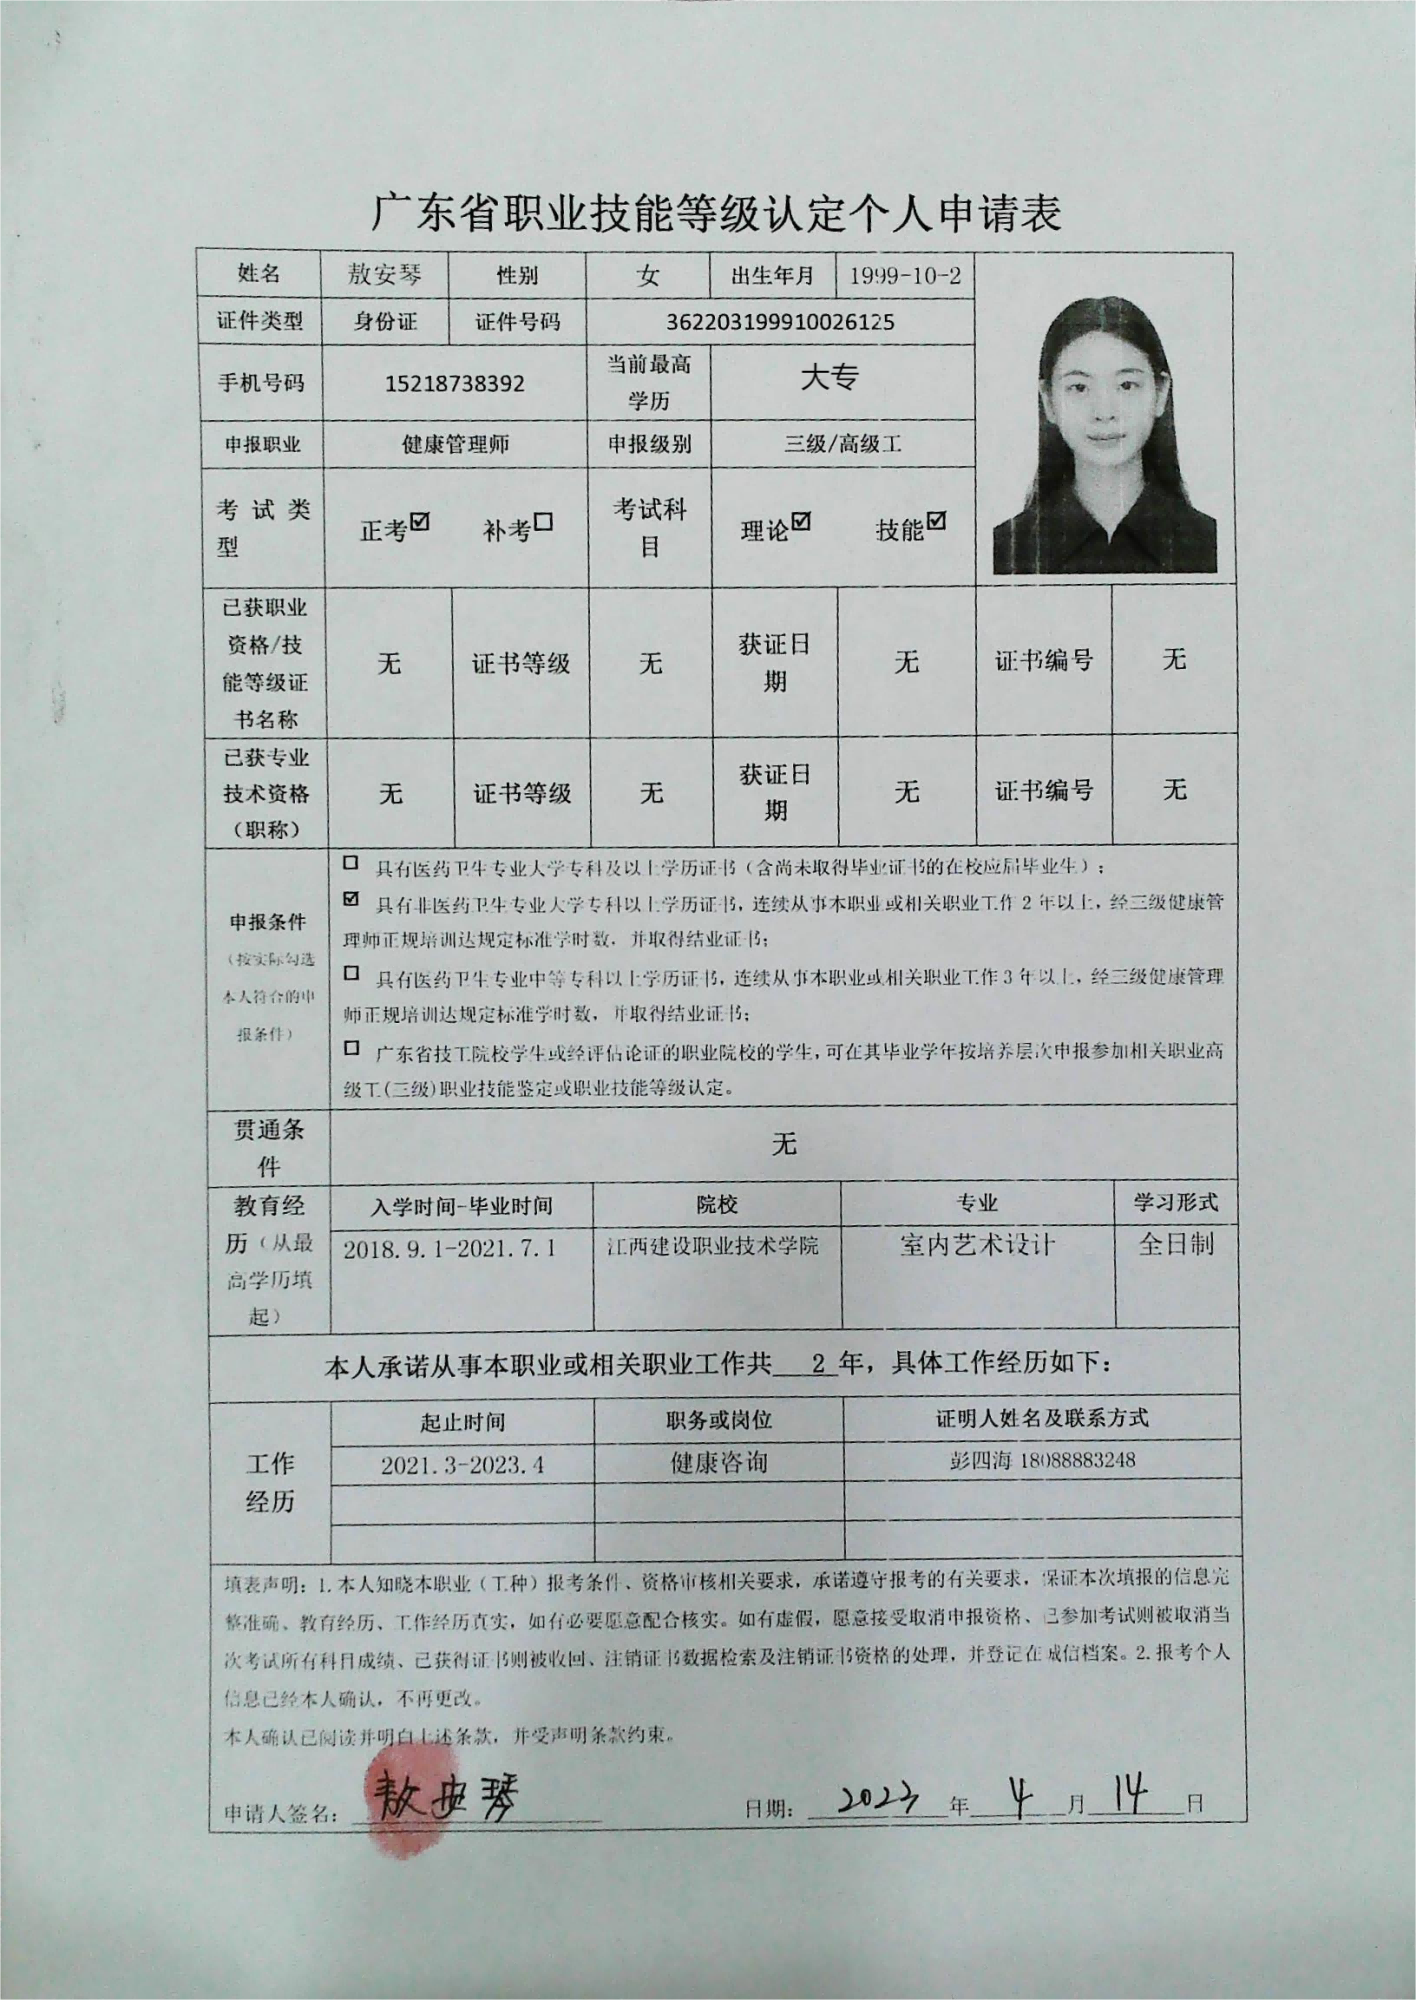 广东省职业技能等级认定个人申请表
姓名 敖安琴 性别 女 出生年月 1999-10-2
证件类型 身份证 证件号码 362203199910026125
手机号码 15218738392 当前最高学历 大专
申报职业 健康管理师 申报级别 三级/高级工
考试类型 正考☑ 补考☐ 考试科目 理论☑ 技能☑
已获职业资格/技能等级证书名称 无 证书等级 无 获证日期 无 证书编号 无
已获专业技术资格（职称） 无 证书等级 无 获证日期 无 证书编号 无
申报条件（按实际勾选本人符合的申报条件）
☐ 具有医药卫生专业大学专科及以上学历证书（含尚未取得毕业证书的在校应届毕业生）；
☑ 具有非医药卫生专业大学专科以上学历证书，连续从事本职业或相关职业工作 2 年以上，经三级健康管
理师正规培训达规定标准学时数，并取得结业证书；
☐ 具有医药卫生专业中等专科以上学历证书，连续从事本职业或相关职业工作 3 年以上，经三级健康管理
师正规培训达规定标准学时数，并取得结业证书；
☐ 广东省技工院校学生或经评估论证的职业院校的学生，可在其毕业学年按培养层次申报参加相关职业高
级工(三级)职业技能鉴定或职业技能等级认定。
贯通条件 无
教育经历（从最高学历填起） 入学时间-毕业时间 院校 专业 学习形式
2018.9.1-2021.7.1 江西建设职业技术学院 室内艺术设计 全日制
本人承诺从事本职业或相关职业工作共 2 年，具体工作经历如下：
工作经历 起止时间 职务或岗位 证明人姓名及联系方式
2021.3-2023.4 健康咨询 彭四海 18088883248
填表声明：1.本人知晓本职业（工种）报考条件、资格审核相关要求，承诺遵守报考的有关要求，保证本次填报的信息完
整准确、教育经历、工作经历真实，如有必要愿意配合核实。如有虚假，愿意接受取消申报资格、已参加考试则被取消当
次考试所有科目成绩、已获得证书则被收回、注销证书数据检索及注销证书资格的处理，并登记在诚信档案。2.报考个人
信息已经本人确认，不再更改。
本人确认已阅读并明白上述条款，并受声明条款约束。
申请人签名： 敖安琴 日期： 2023 年 4 月 14 日